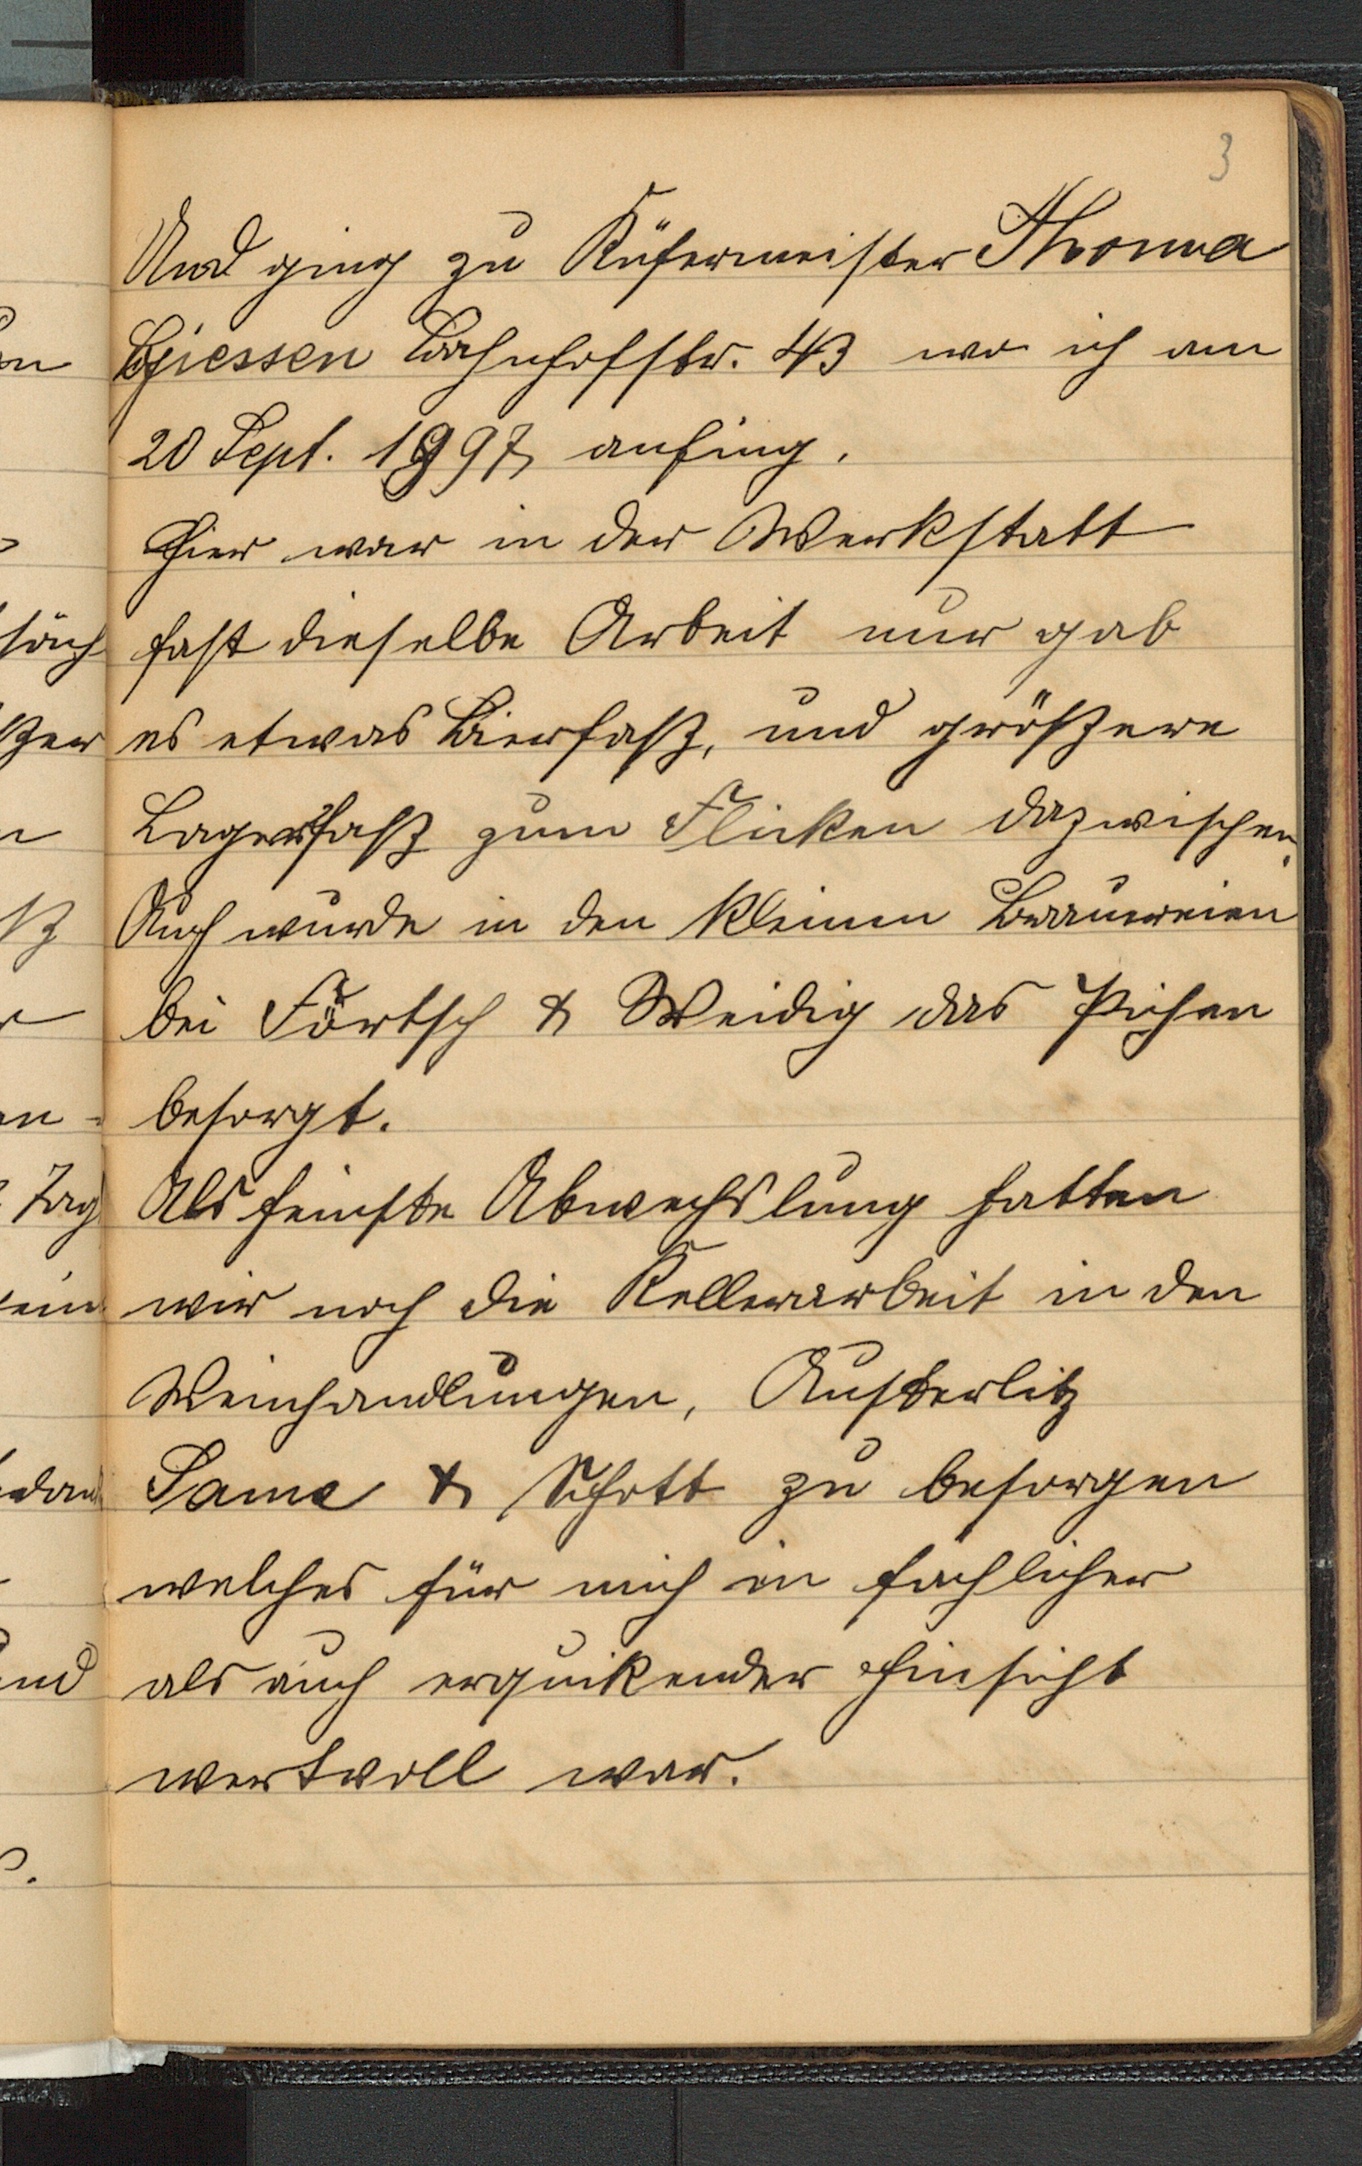 3
Und ging zu Küfermeister Thoma
Giessen Bahnhofstr. 43 wo ich am
20 Sept. 1997 anfing.
Hier war in der Werkstatt
fast dieselbe Arbeit nur gab
es etwas Bierfaß, und größere
Lagerfaß zum Flicken dazwischen.
Auch wurde in den kleinen Brauereien
bei Förtsch & Weidig das Pichen
besorgt.
Als feinste Abwechslung hatten
wir noch die Kellerarbeit in den
Weinhandlungen, Austerlitz
Same & Schott zu besorgen
welches für mich in fachlicher
als auch erquikender Hinsicht
wertvoll war.